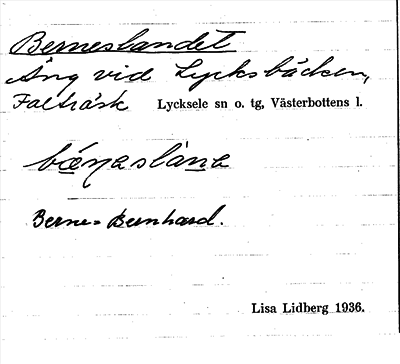 Berneslandet
Äng vid Lycksbäcken,
Falträsk Lycksele sn o. tg, Västerbottens l.
bæ̣ṇesla̱ṉe
Berne = Bernhard.
Lisa Lidberg 1936.